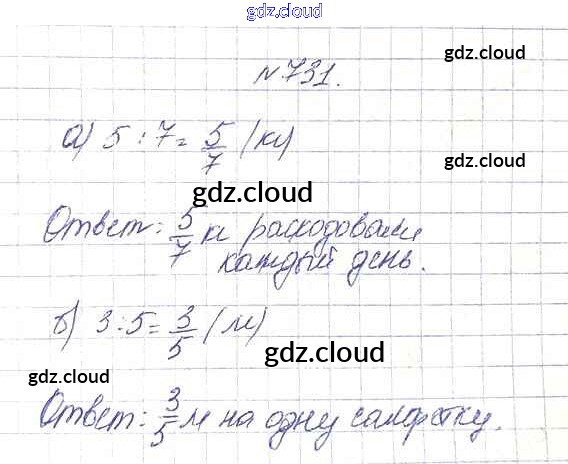 gdz.cloud
gdz.cloud
№ 731.
а) 5 : 7 = 5/7 (кг)
gdz.cloud
gdz.cloud
Ответ: 5/7 кг расходовали
каждый день.
б) 3 : 5 = 3/5 (м)
gdz.cloud
gdz.cloud
Ответ: 3/5 м на одну салфетку.
gdz.cloud
gdz.cloud